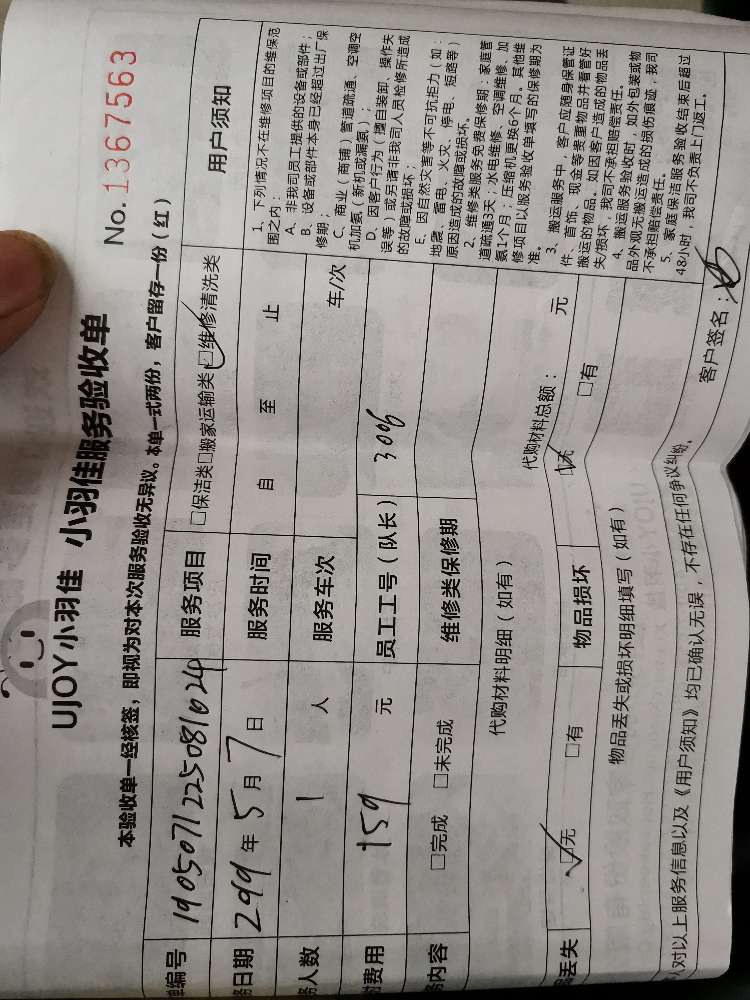 UJOY小羽佳 小羽佳服务验收单
No. 1367563
本验收单一经核签，即视为对本次服务验收无异议。本单一式两份，客户留存一份（红）
单编号 1905071225081024 服务项目 □保洁类□搬家运输类□维修清洗类
务日期 2019年5月7日 服务时间 自 至 止
务人数 1 人 服务车次 车/次
付费用 159 元 员工工号（队长） 306
务内容 □完成 □未完成 维修类保修期
代购材料明细（如有）
代购材料总额： 元
品丢失 □无 □有 物品损坏 □无 □有
物品丢失或损坏明细填写（如有）
用户须知
1、下列情况不在维修项目的维保范
围之内：
A、非我司员工提供的设备或部件；
B、设备或部件本身已经超过出厂保
修期；
C、商业（商铺）管道疏通、空调空
机加氨（新机或漏氨）；
D、因客户行为（擅自装卸、操作失
误等）或另请非我司人员检修所造成
的故障或损坏；
E、因自然灾害等不可抗拒力（如：
地震、雷电、火灾、停电、短路等）
原因造成的故障或损坏。
2、维修类服务免费保修期：家庭管
道疏通3天；水电维修、空调维修、加
氨1个月；压缩机更换6个月。其他维
修项目以服务验收单填写的保修期为
准。
3、搬运服务中，客户应随身保管证
件、首饰、现金等贵重物品并看管好
搬运的物品。如因客户造成的物品丢
失/损坏，我司不承担赔偿责任。
4、搬运服务验收时，如外包装或物
品外观无搬运造成的损伤痕迹，我司
不承担赔偿责任。
5、家庭保洁服务验收结束后超过
48小时，我司不负责上门返工。
人对以上服务信息以及《用户须知》均已确认无误，不存在任何争议纠纷。
客户签名：